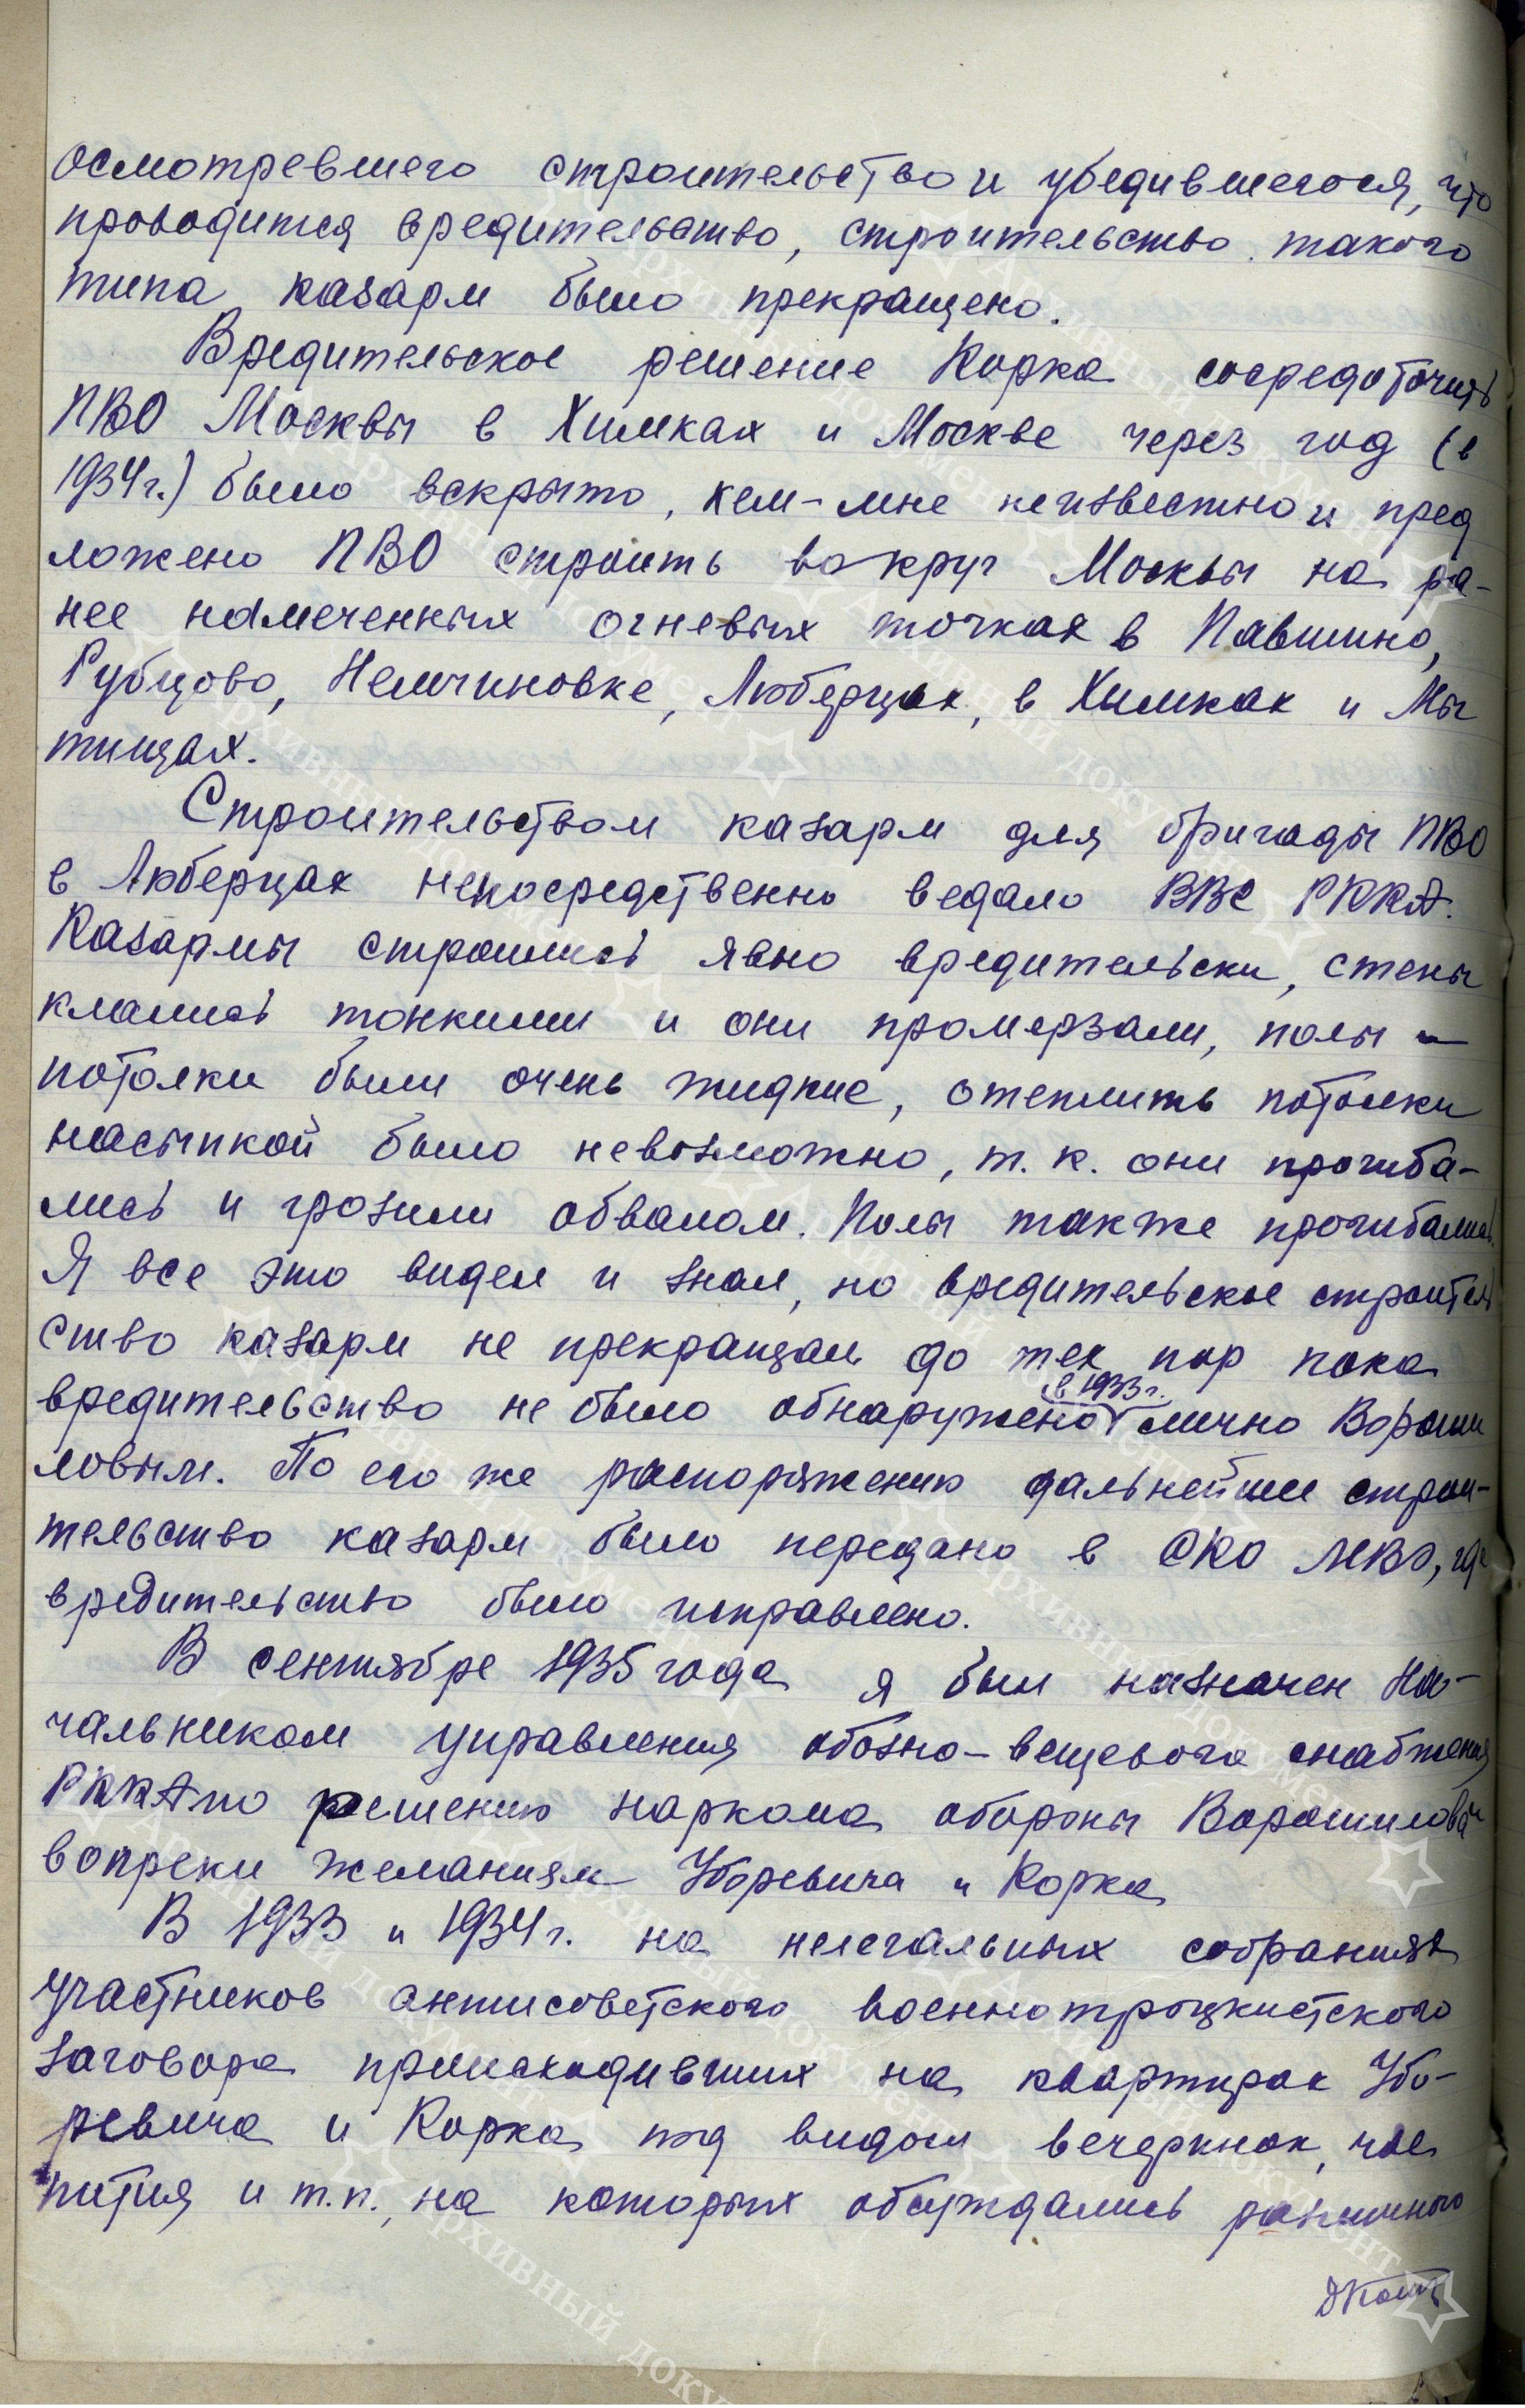 осмотревшего строительство и убедившегося, что
проводится вредительство, строительство такого
типа казарм было прекращено.
Вредительское решение Корка сосредоточить
ПВО Москвы в Химках и Москве через год (в
1934 г.) было вскрыто, кем-мне неизвестно и пред
ложено ПВО строить вокруг Москвы на ра-
нее намеченных огневых точках в Павшино,
Рубцово, Немчиновке, Люберцах, в Химках и Мы
тищах.
Строительством казарм для бригады ПВО
в Люберцах непосредственно ведало ВВС РККА.
Казармы строились явно вредительски, стены
клались тонкими и они промерзали, полы и
потолки были очень жидкие, отеплить потолки
насыпкой было невозможно, т. к. они прогиба-
лись и грозили обвалом. Полы также прогибались.
Я все это видел и знал, но вредительское строитель
ство казарм не прекращал до тех пор пока
в 1933 г.
вредительство не было обнаружено лично Вороши
ловым. По его же распоряжению дальнейшее строи-
тельство казарм было передано в СКО МВО, где
вредительство было исправлено.
В сентябре 1935 года я был назначен На-
чальником управления обозно-вещевого снабжения
РККА по решению наркома обороны Ворошилова
вопреки желаниям Уборевича и Корка
В 1933 и 1934 г. на нелегальных собраниях
участников антисоветского военнотроцкистского
заговора происходивших на квартирах Убо-
ревича и Корка под видом вечеринок, чае
пития и т.п., на которых обсуждались различного
Архивный документ